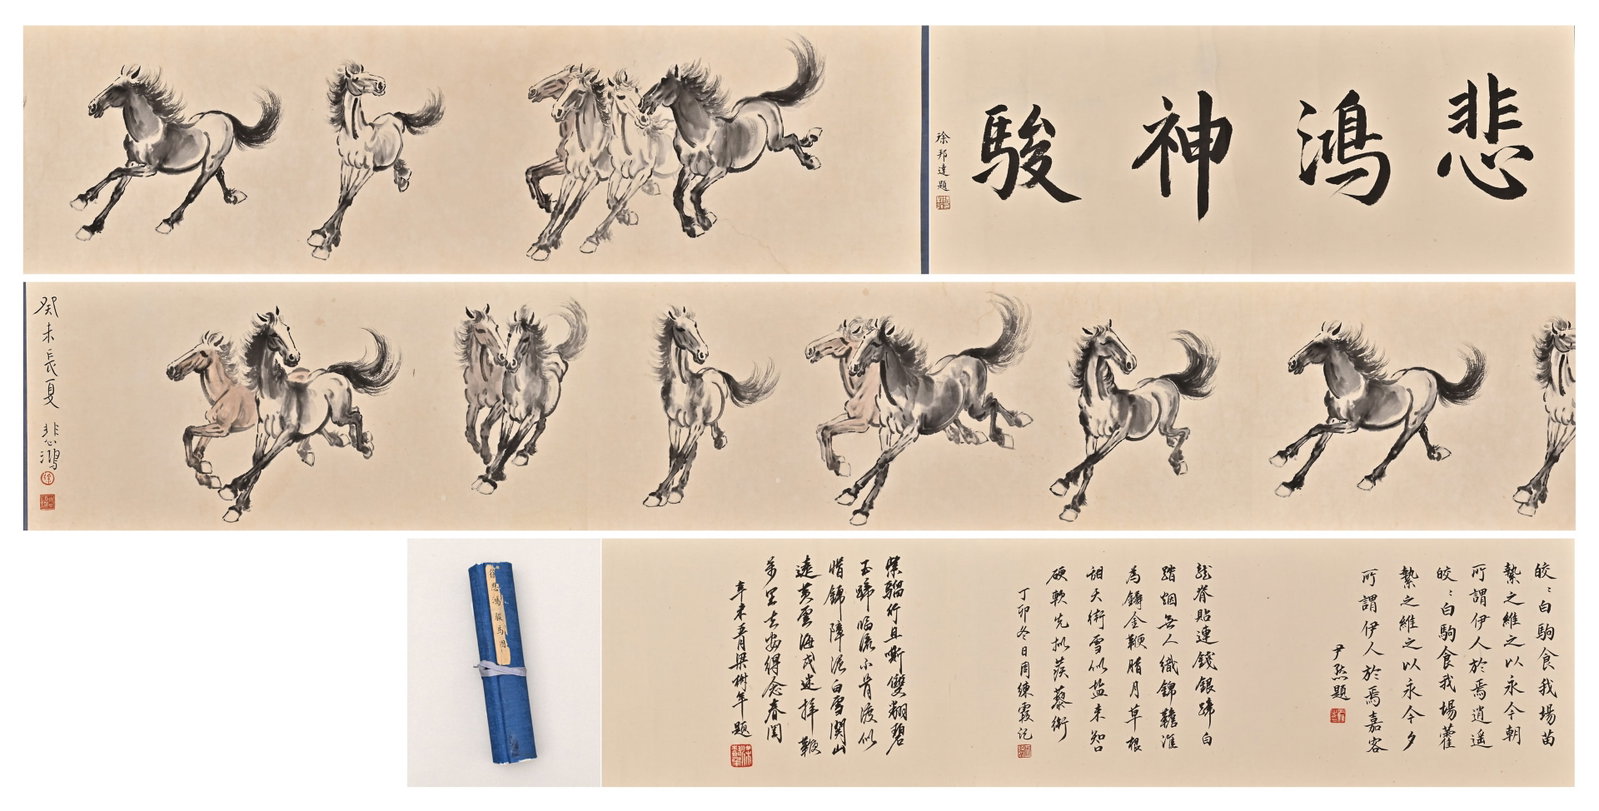 悲鴻神駿
徐邦達題
癸未長夏
悲鴻
皎：白駒食我場苗
縶之維之以永今朝
所謂伊人於焉逍遥
皎：白駒食我場藿
縶之維之以永今夕
所謂伊人於焉嘉客
尹默題
龍脊貼連錢銀蹄白
踏烟無人織錦韂誰
為鑄金鞭腊月草根
甜天街雪似盐未知口
硬軟先拟蒺藜銜
丁卯冬日周練霞記
紫騮行且嘶雙翻碧
玉蹄臨流不肯渡似
惜錦障泥白雪関山
遠黄雲海戍迷揮鞭
萬里去安得念春閨
辛未五月梁樹年題
徐悲鴻駿馬圖